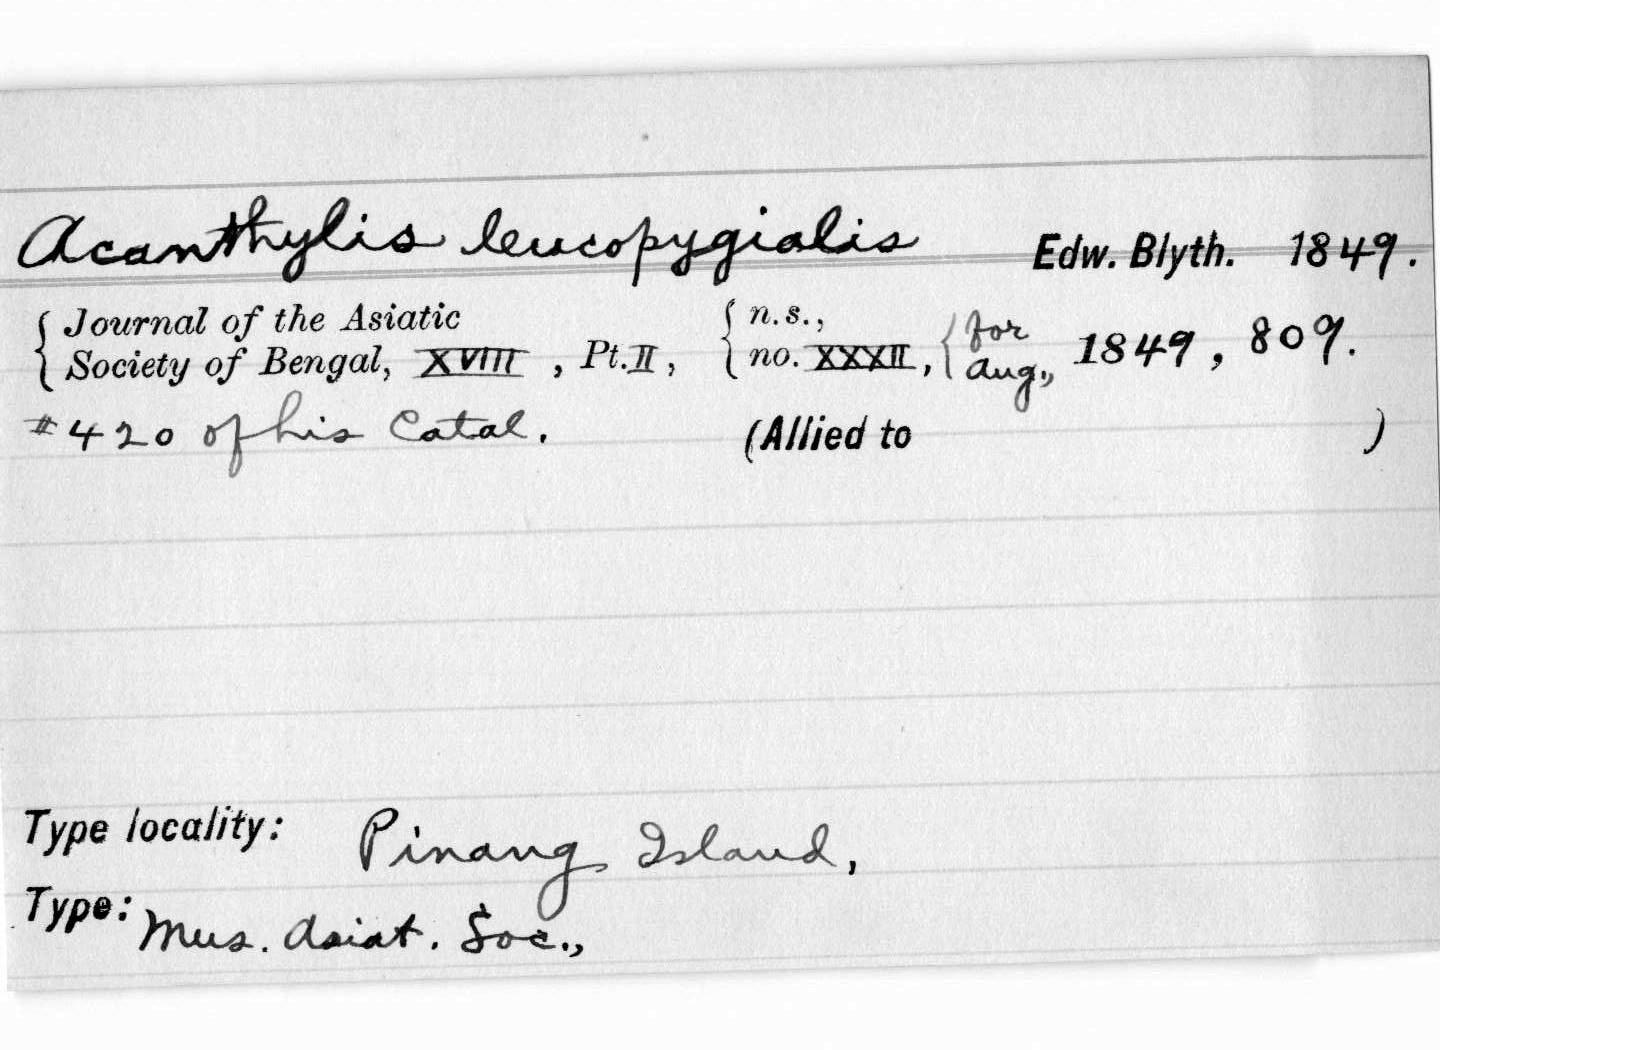 Acanthylis leucopygialis Edw. Blyth. 1849.
{ Journal of the Asiatic { n.s., { for
{ Society of Bengal, XVIII, Pt. II, { no. XXXII, { Aug., 1849, 809.
#420 of his Catal. (Allied to )
Type locality: Pinang Island,
Type: Mus. Asiat. Soc.,